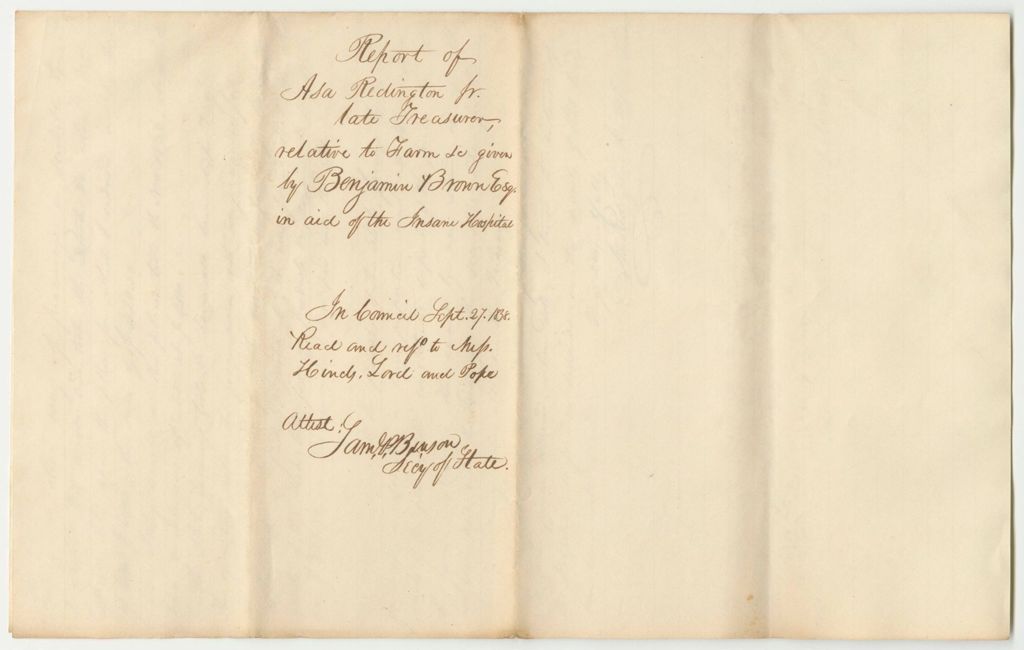 Report of
Asa Redington Jr.
late Treasurer,
relative to Farm &c given
by Benjamin Brown Esq.
in aid of the Insane Hospital
In Council Sept. 27. 1838.
Read and refd to Mess.
Hinds, Lord and Pope
Attest:
Saml P. Benson
Secy of State.